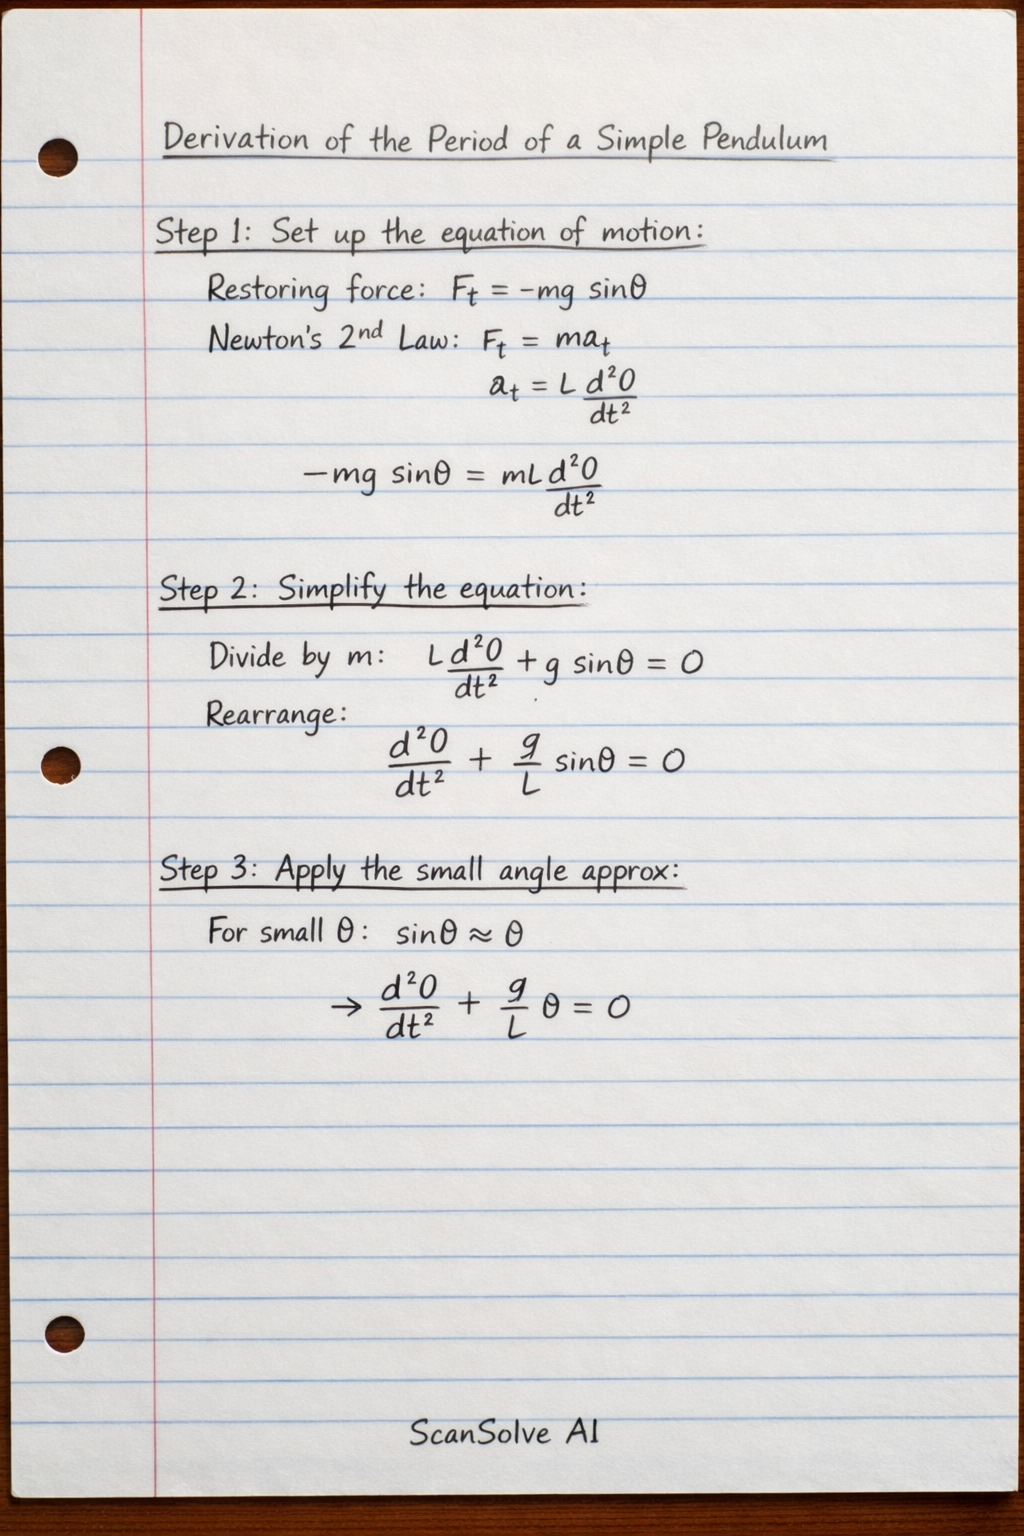 Derivation of the Period of a Simple Pendulum
Step 1: Set up the equation of motion:
Restoring force: Fₜ = -mg sinθ
Newton's 2ⁿᵈ Law: Fₜ = maₜ
aₜ = L d²O/dt²
−mg sinθ = mL d²O/dt²
Step 2: Simplify the equation:
Divide by m: L d²O/dt² + g sinθ = O
Rearrange:
d²O/dt² + g/L sinθ = O
Step 3: Apply the small angle approx:
For small θ: sinθ ≈ θ
→ d²O/dt² + g/L θ = O
ScanSolve AI